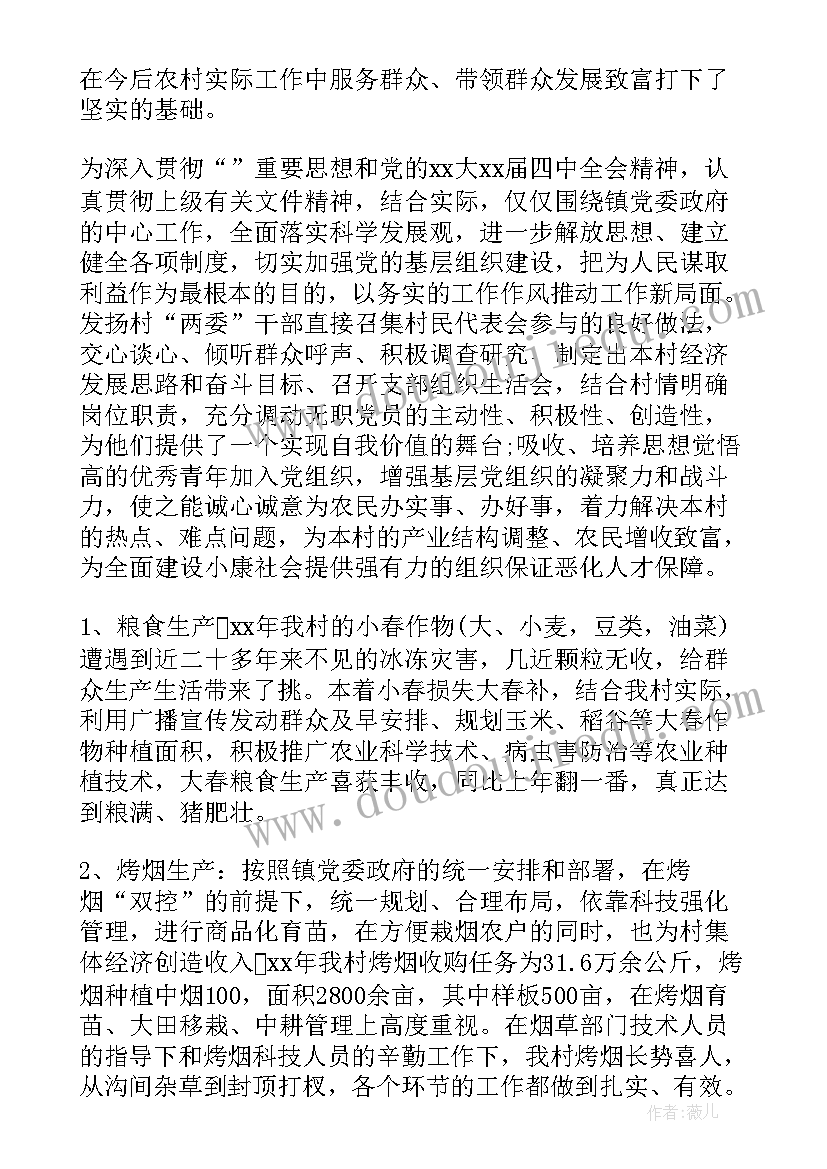 在今后农村实际工作中服务群众、带领群众发展致富打下了
坚实的基础。
为深入贯彻“”重要思想和党的xx大xx届四中全会精神，认
真贯彻上级有关文件精神，结合实际，仅仅围绕镇党委政府
的中心工作，全面落实科学发展观，进一步解放思想、建立
健全各项制度，切实加强党的基层组织建设，把为人民谋取
利益作为最根本的目的，以务实的工作作风推动工作新局面。
发扬村“两委”干部直接召集村民代表会参与的良好做法，
交心谈心、倾听群众呼声、积极调查研究，制定出本村经济
发展思路和奋斗目标、召开支部组织生活会，结合村情明确
岗位职责，充分调动无职党员的主动性、积极性、创造性，
为他们提供了一个实现自我价值的舞台;吸收、培养思想觉悟
高的优秀青年加入党组织，增强基层党组织的凝聚力和战斗
力，使之能诚心诚意为农民办实事、办好事，着力解决本村
的热点、难点问题，为本村的产业结构调整、农民增收致富，
为全面建设小康社会提供强有力的组织保证恶化人才保障。
1、粮食生产□xx年我村的小春作物(大、小麦，豆类，油菜)
遭遇到近二十多年来不见的冰冻灾害，几近颗粒无收，给群
众生产生活带来了挑。本着小春损失大春补，结合我村实际，
利用广播宣传发动群众及早安排、规划玉米、稻谷等大春作
物种植面积，积极推广农业科学技术、病虫害防治等农业种
植技术，大春粮食生产喜获丰收，同比上年翻一番，真正达
到粮满、猪肥壮。
2、烤烟生产：按照镇党委政府的统一安排和部署，在烤
烟“双控”的前提下，统一规划、合理布局，依靠科技强化
管理，进行商品化育苗，在方便栽烟农户的同时，也为村集
体经济创造收入□xx年我村烤烟收购任务为31.6万余公斤，烤
烟种植中烟100，面积2800余亩，其中样板500亩，在烤烟育
苗、大田移栽、中耕管理上高度重视。在烟草部门技术人员
的指导下和烤烟科技人员的辛勤工作下，我村烤烟长势喜人，
从沟间杂草到封顶打杈，各个环节的工作都做到扎实、有效。
www.doudoujiedu.com
www.doudoujiedu.com
作者:薇儿